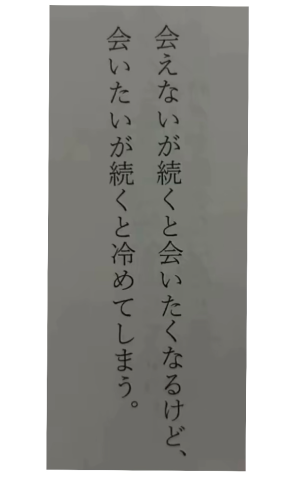 会えないが続くと会いたくなるけど、
会いたいが続くと冷めてしまう。